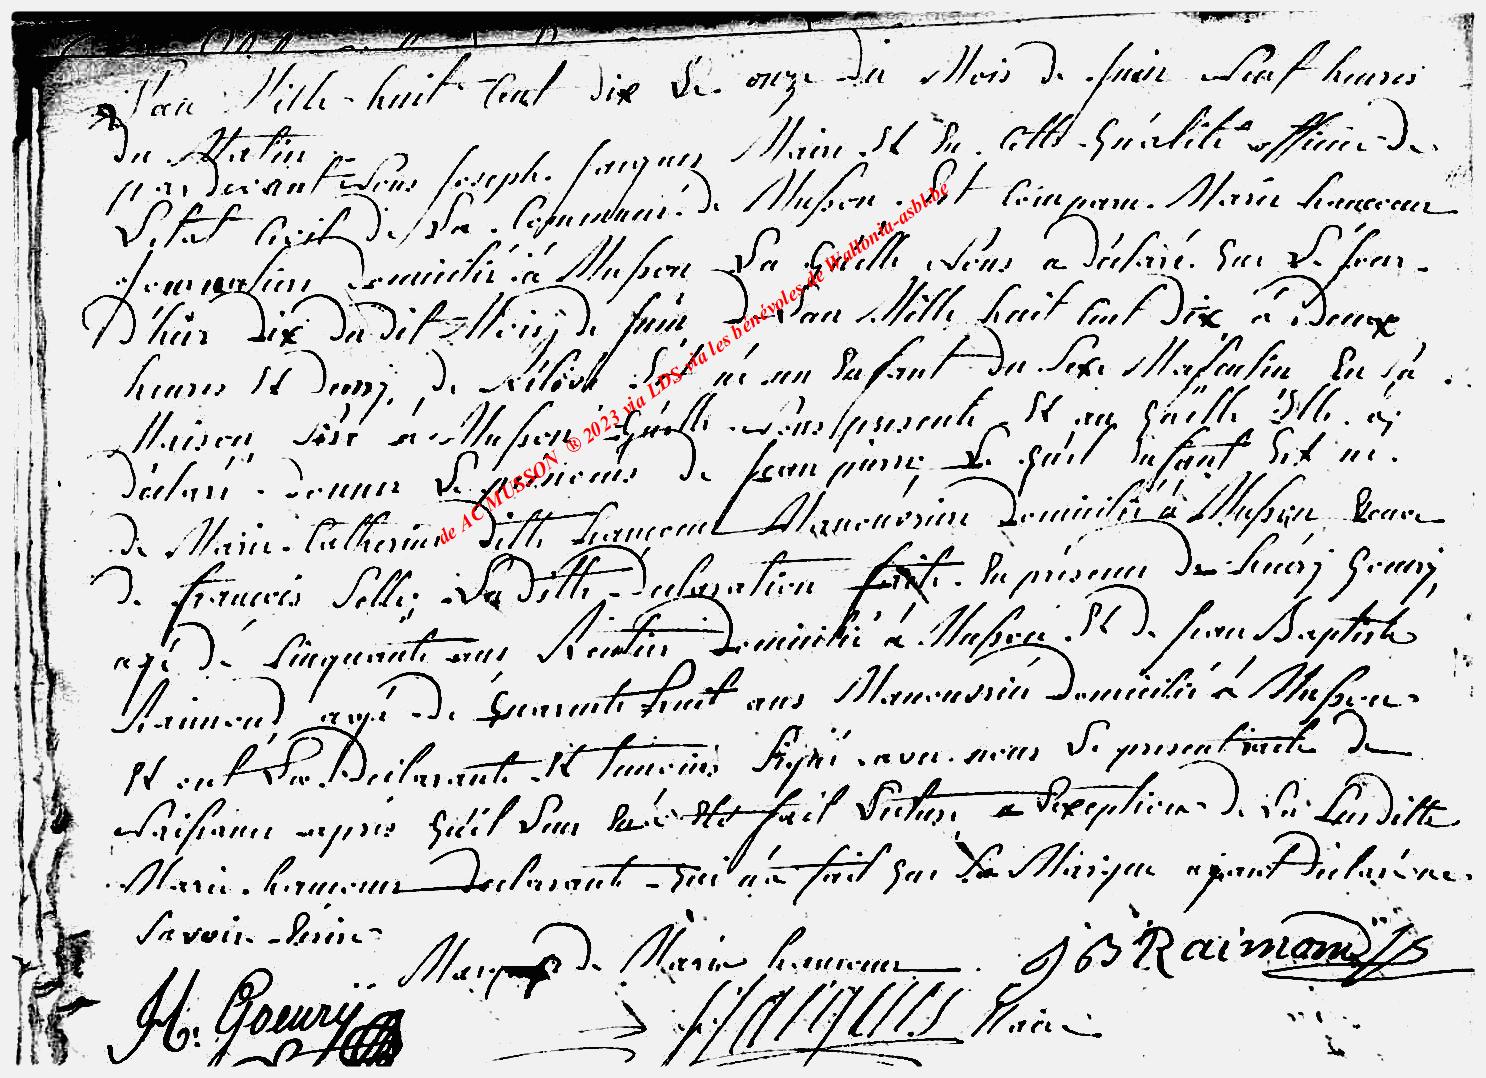 L'an Mille huit Cent dix Le onze du Mois de Juin Neuf heures
du Matin
pardevant Nous Joseph Jacques Maire Et En Cette Qualité officier de
L'état Civil de La Commune de Musson Est Comparu Marie hancour
Journalier domicilié à Musson La Quelle Nous a déclaré Que Le Jour
D'hier dix dudit Mois de Juin de L'an Mille huit Cent dix à deux
heures Et demj de Est né un Enfant du Sexe Masculin En sa
Maison Sise à Musson Quelle Nous presente Et au Quelle Elle aj
déclaré donner Le prenoms de Jean pierre Le Quel Enfant Est né
de Marie Catherine ditte hancour Manouvrier domicilié à Musson Veuve
de francois La ditte declaration faite En présence de henrj Gourj
agé de Cinquante ans Rentier domicilié à Musson Et de Jean Baptiste
Raimond agé de Quarente huit ans Manouvrier domicilié à Musson
Et ont La Déclarante Et temoins Signé avec nous Le present acte de
Naissance après Qu'il Leur En à Eté fait Lecture a L'exeption de La Susditte
Marie hancour declarante Qui n'a fait Que Sa Marque ajant Déclaré ne
Savoir Ecrire
Marque de Marie hancour
J B Raimond
H. Goeury
J Jacques Maire
de AC MUSSON ® 2023 via LDS via les bénévoles de Wallonia-asbl.be